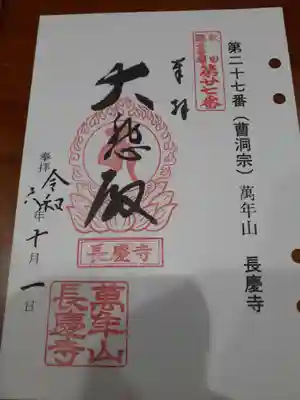 第二十七番（曹洞宗）萬年山　長慶寺
第廿七番
奉拝
大悲殿
長慶寺
奉拝 令和六年十月一日
萬年山
長慶寺